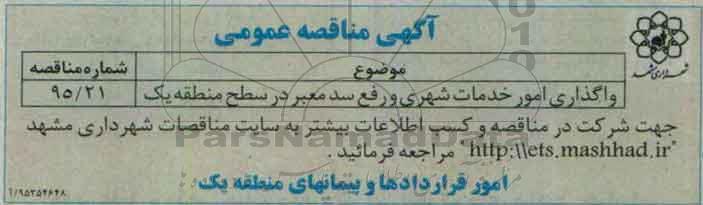 آگهی مناقصه عمومی
شهرداری مشهد
موضوع
شماره مناقصه
واگذاری امور خدمات شهری و رفع سد معبر در سطح منطقه یک
۹۵/۲۱
جهت شرکت در مناقصه و کسب اطلاعات بیشتر به سایت مناقصات شهرداری مشهد
"http:\\ets.mashhad.ir" مراجعه فرمائید .
امور قراردادها و پیمانهای منطقه یک
۱/۹۵۲۵۴۶۴۸
ParsNamadData